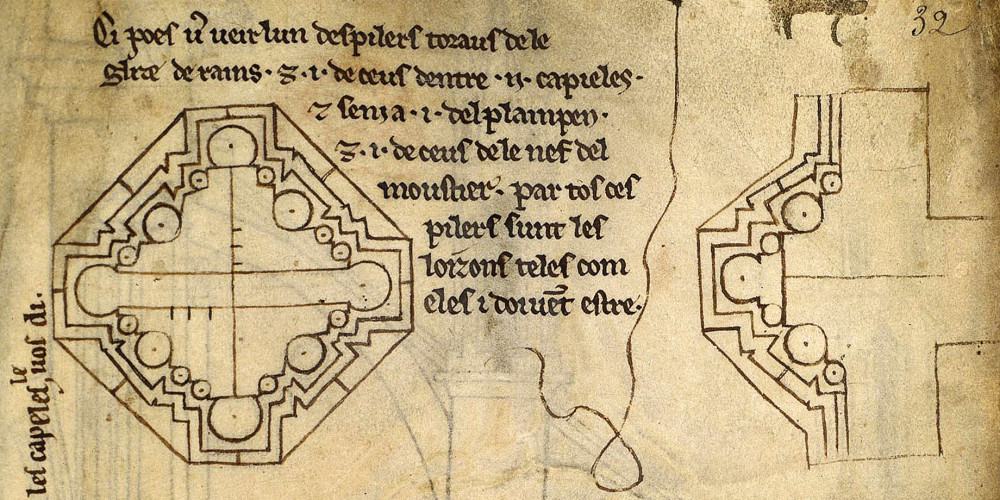 Ci poes ũ ueir lun des pilers toraus de le
glize de rains · ⁊ · i · de ceus dentre · ij · capieles ·
⁊ sen i a · i · del plain pen ·
⁊ · i · de ceus de le nef del
moustier · par tos ces
pilers sunt les
loizons teles com
eles i doiuẽt estre ·
les capeles, uos di.
le
32